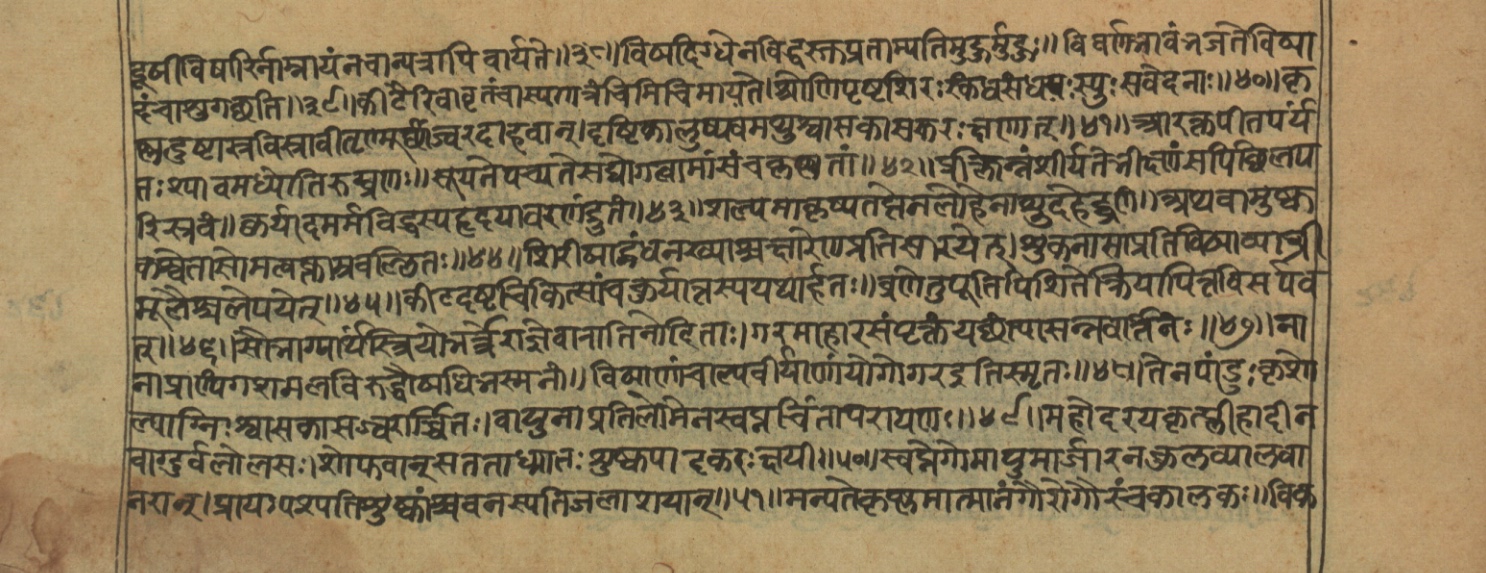 दूषीविषारिर्नाम्नायं न चान्यत्रापि वार्यते॥३८॥विषदिग्धेन विद्धस्तु प्रताम्यति मुहुर्मुहुः॥ विवर्णभावं भजते विषा
दं चाशु गच्छति॥३९॥कीटैरिवावृतं चास्य गात्रं चिमिचिमायते।श्रोणिपृष्टशिरःस्कंधसंधयःस्युः सवेदनाः॥४०॥कृ
ष्णदुष्टास्रविस्रावी तृण्मूर्छाज्वरदाहवान्।दृष्टिकालुष्यवमथुश्वासकासकरः क्षणात्॥४१॥आरक्तपीतपर्यं
तःश्यावमध्योतिरुग्व्रणः॥शूयते पच्यते सद्यो गत्वा मांसं च कृष्णतां॥४२॥प्रक्लिन्नं शीर्यते भीक्ष्णं सपिच्छिलप
रिस्रवं॥कुर्यादमर्मविद्धस्य हृदयावरणं द्रुतं॥४३॥शल्यमाकृष्य तप्तेन लोहेनानुदहेद्व्रणं॥अथवा मुष्क
कश्वेतासोमत्वक्ताम्रवल्लितः॥४४॥शिरीषाद्गृध्रनख्याश्च क्षारेण प्रतिसारयेत्।शुकनासाप्रतिविषाव्याघ्री
मूलैश्च लेपयेत्॥४५॥कीटदष्टचिकित्सां च कुर्यात्तस्य यथार्हतः॥व्रणे तु पूतिपिशिते क्रिया पित्तविसर्पव
त्॥४६॥सौभाग्यार्थं स्त्रियो भर्त्रे राज्ञे वारातिनोदिताः।गरमाहारसंपृक्तं यच्छंत्यासन्नवर्तिनः॥४७॥ना
नाप्राण्यंगशमलविरुद्धौषधिभस्मनां॥विषाणां चाल्पवीर्याणां योगो गर इति स्मृतः॥४८॥तेन पांडुः कृशो
ल्पाग्निः श्वासकासज्वरार्दितः।वायुना प्रतिलोमेन स्वप्नचिंतापरायणः॥४९॥महोदरयकृत्प्लीहादीन
वाग्दुर्बलोलसः।शोफवान् सतताध्मातः शुष्कपादकरः क्षयी॥५०॥स्वप्ने गोमायुमार्जारनकुलव्यालवा
नरान्।प्रायः पश्यति शुष्कांश्च वनस्पतिजलाशयान्॥५१॥मन्यते कृष्णमात्मानं गौरो गौरं च कालकः॥विक